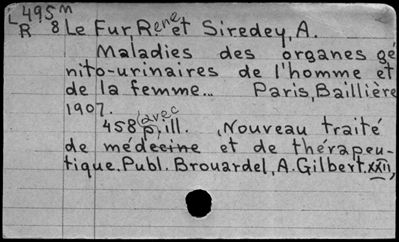 L495m
R 8 Le Fur, Rene et Siredey, A.
Maladies des organes gé
nito-urinaires de l'homme et
de la femme... Paris, Baillière
1907.
458 p, (avec ill. , Nouveau traité
de médecine et de thérapeu-
tique. Publ. Brouardel, A. Gilbert. XXII,